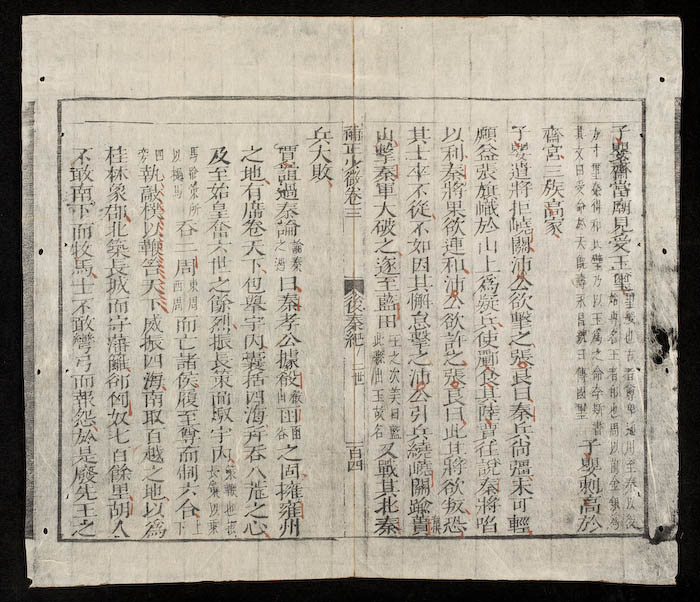 子嬰齋當廟見受玉璽
子嬰刺高於
齋宮三族高家
子嬰遣將拒嶢關沛公欲擊之張良曰秦兵尚彊未可輕
願益張旗幟於山上爲疑兵使酈食其陸賈往說秦將啗
以利秦將果欲連和沛公欲許之張良曰此其將欲叛恐
其士卒不從不如因其懈怠擊之沛公引兵繞嶢關踰蕢
山擊秦軍大破之遂至藍田又戰其北秦
兵大敗
補正少微卷三 後秦紀 二世 一百四
賈誼過秦論曰秦孝公據殽函之固擁雍州
之地有席卷天下包舉宇內囊括四海幷吞八荒之心
及至始皇奮六世之餘烈振長策而馭宇內
吞二周 東周西周 而亡諸侯履至尊而制六合
執敲朴以鞭笞天下威振四海南取百越之地以爲
桂林象郡北築長城而守藩籬卻匈奴七百餘里胡人
不敢南下而牧馬士不敢彎弓而報怨於是廢先王之